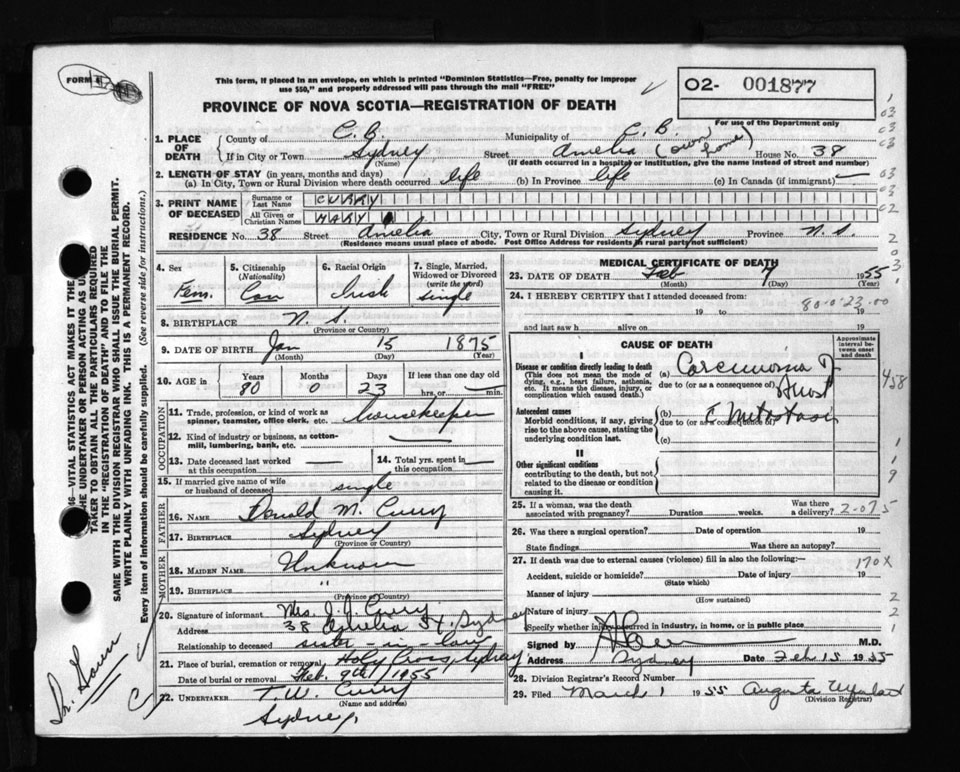 FORM
This form, if placed in an envelope, on which is printed "Dominion Statistics—Free, penalty for improper
use $50," and properly addressed will pass through the mail "FREE"
PROVINCE OF NOVA SCOTIA—REGISTRATION OF DEATH
02- 001877
For use of the Department only
1. PLACE OF DEATH
County of C. B. Municipality of C. B.
If in City or Town Sydney Street Amelia (own home) House No. 38
(Name) (If death occurred in a hospital or institution, give the name instead of street and number)
2. LENGTH OF STAY (in years, months and days)
(a) In City, Town or Rural Division where death occurred life (b) In Province life (c) In Canada (if immigrant) —
3. PRINT NAME OF DECEASED
Surname or Last Name CURRY
All Given or Christian Names MARY
RESIDENCE No. 38 Street Amelia City, Town or Rural Division Sydney Province N. S.
(Residence means usual place of abode. Post Office Address for residents in rural parts not sufficient)
4. Sex Fem.
5. Citizenship (Nationality) Can
6. Racial Origin Irish
7. Single, Married, Widowed or Divorced (write the word) single
8. BIRTHPLACE N. S.
(Province or Country)
9. DATE OF BIRTH Jan 15 1875
(Month) (Day) (Year)
10. AGE in Years Months Days If less than one day old
80 0 23 hr. — min.
OCCUPATION
11. Trade, profession, or kind of work as spinner, teamster, office clerk, etc. Housekeeper
12. Kind of industry or business, as cotton-mill, lumbering, bank, etc. —
13. Date deceased last worked at this occupation —
14. Total yrs. spent in this occupation —
15. If married give name of wife or husband of deceased single
FATHER
16. NAME Donald M. Curry
17. BIRTHPLACE Sydney
(Province or Country)
MOTHER
18. MAIDEN NAME Unknown
19. BIRTHPLACE "
(Province or Country)
20. Signature of informant Mrs. J. J. Curry
Address 38 Amelia St. Sydney
Relationship to deceased sister-in-law
21. Place of burial, cremation or removal Holy Cross, Sydney
Date of burial or removal Feb. 9th/1955
22. UNDERTAKER T. W. Curry
(Name and address)
Sydney
MEDICAL CERTIFICATE OF DEATH
23. DATE OF DEATH Feb 7 1955
(Month) (Day) (Year)
24. I HEREBY CERTIFY that I attended deceased from:
19 to 19
80 0 23.00
and last saw h alive on 19
CAUSE OF DEATH
Approximate interval between onset and death
I
Disease or condition directly leading to death
(This does not mean the mode of dying, e.g., heart failure, asthenia, etc. It means the disease, injury, or complication which caused death.)
(a) Carcinoma of
due to (or as a consequence of) Breast
Antecedent causes
Morbid conditions, if any, giving rise to the above cause, stating the underlying condition last.
(b) c Metastasis
due to (or as a consequence of)
(c)
458
II
Other significant conditions
contributing to the death, but not related to the disease or condition causing it.
25. If a woman, was the death associated with pregnancy? Duration weeks. Was there a delivery? 2-075
26. Was there a surgical operation? Date of operation 19
State findings Was there an autopsy?
27. If death was due to external causes (violence) fill in also the following:—
Accident, suicide or homicide? Date of injury 19
170X
(State which)
Manner of injury
(How sustained)
Nature of injury
Specify whether injury occurred in industry, in home, or in public place
Signed by M.D.
Address Sydney Date Feb 15 1955
28. Division Registrar's Record Number
29. Filed March 1 1955 Augusta
(Division Registrar)
46—VITAL STATISTICS ACT MAKES IT THE
THE UNDERTAKER OR PERSON ACTING AS
TAKER TO OBTAIN ALL THE PARTICULARS REQUIRED
IN THE "REGISTRATION OF DEATH" AND TO FILE THE
SAME WITH THE DIVISION REGISTRAR WHO SHALL ISSUE THE BURIAL PERMIT.
WRITE PLAINLY WITH UNFADING INK. THIS IS A PERMANENT RECORD.
Every item of information should be carefully supplied. (See reverse side for instructions.)
Dr.